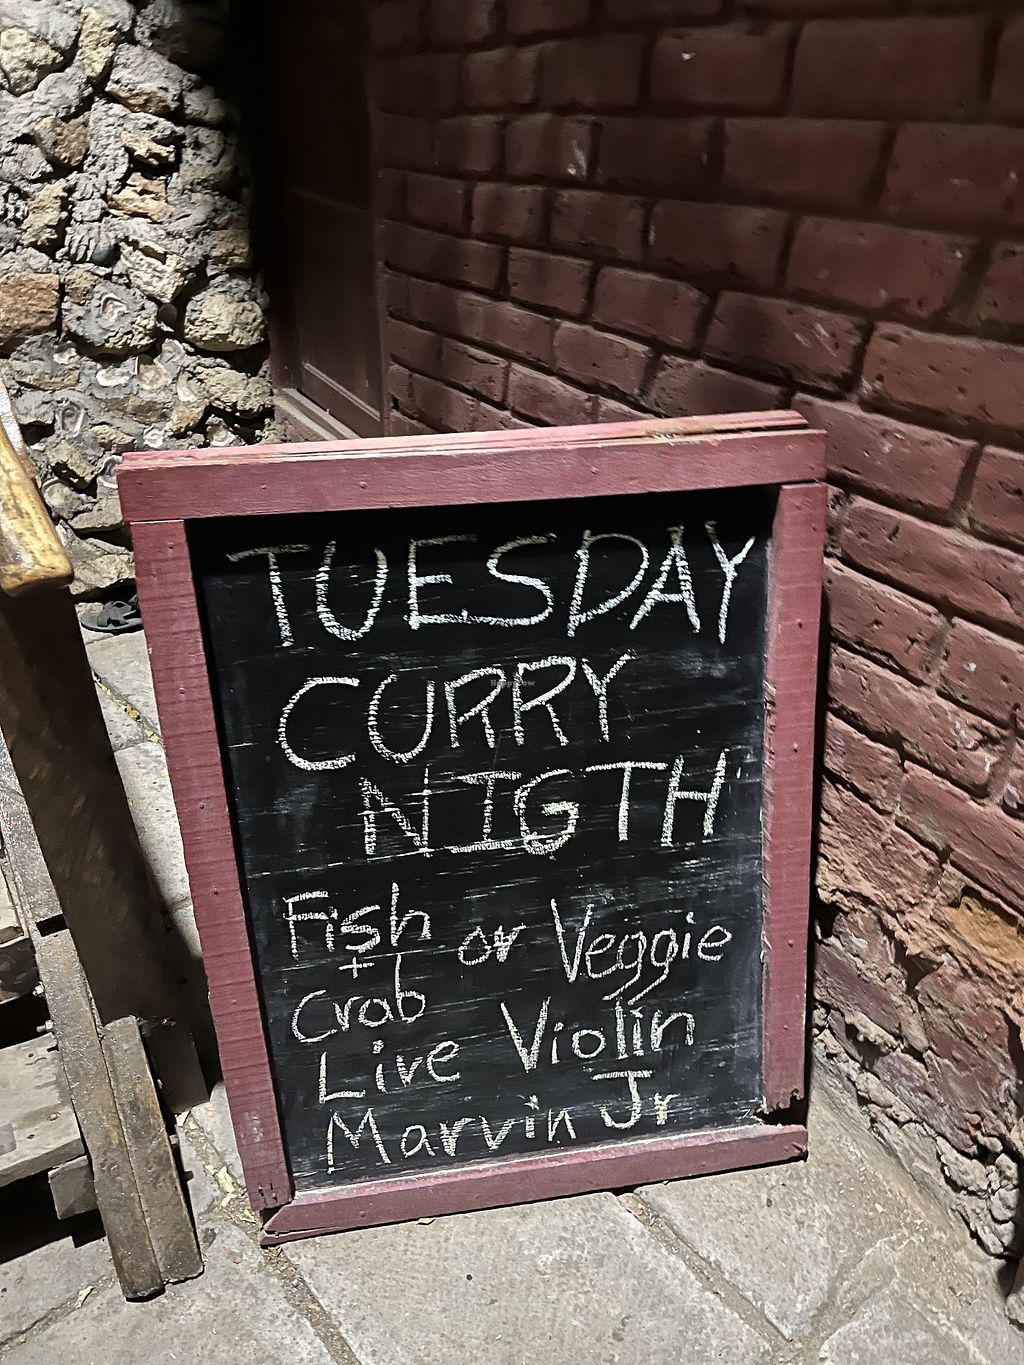 TUESDAY
CURRY
NIGTH
Fish or Veggie
+
Crab
Live Violin
Marvin Jr